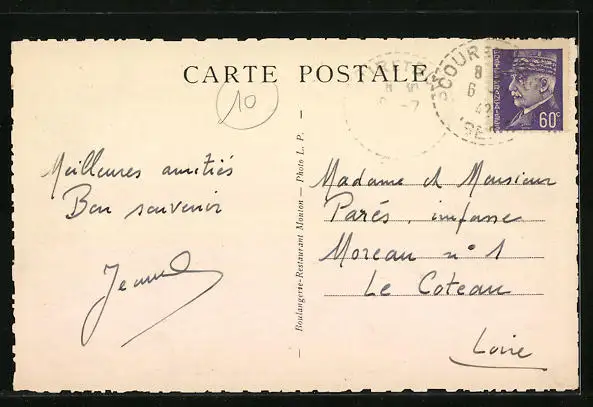 CARTE POSTALE
10
Meilleures amitiés
Bon souvenir
Jeanne
Boulangerie-Restaurant Mouton — Photo L. P.
60c
Madame et Monsieur
Parés, impasse
Moreau n° 1
Le Coteau
Loire